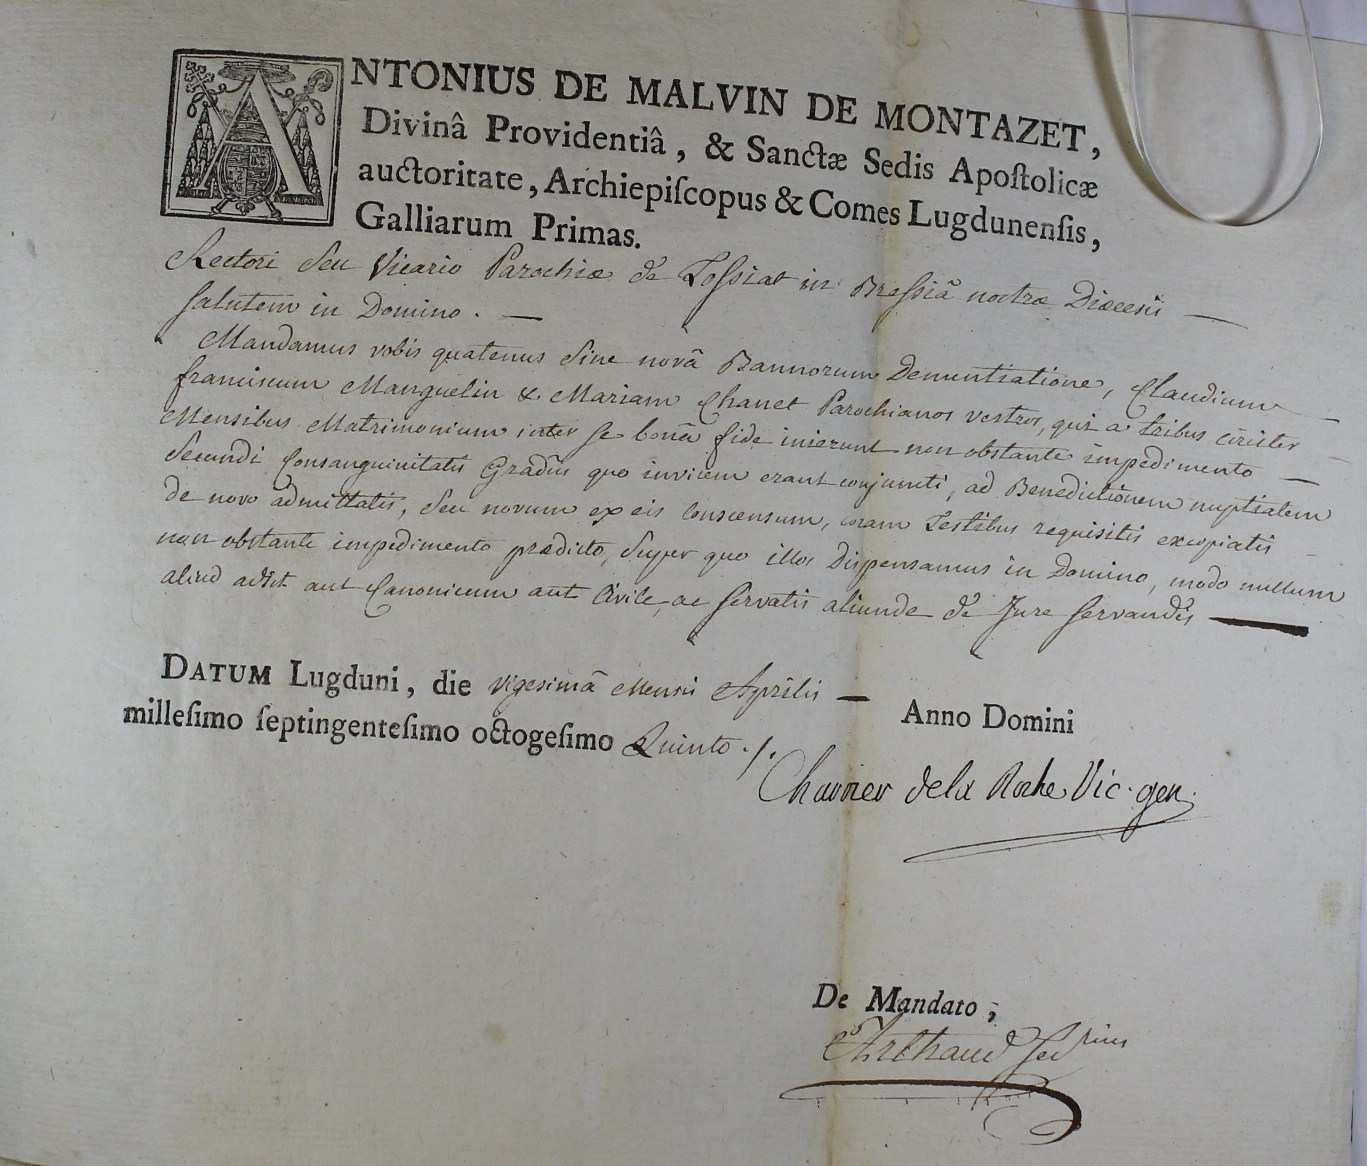 ANTONIUS DE MALVIN DE MONTAZET,
Divinâ Providentiâ, & Sanctæ Sedis Apoſtolicæ
auctoritate, Archiepiſcopus & Comes Lugdunenſis,
Galliarum Primas.
Rectori seu Vicario Parochiæ de Tossiat in Bressiâ nostræ Diœcesis —
salutem in Domino. —
Mandamus vobis quatenus sine novâ Bannorum Denuntiatione, Claudium —
franciscum Manguelin & Mariam Chanet Parochianos vestros, qui a tribus circiter —
Mensibus Matrimonium inter se bonâ fide inierunt non obstante impedimento —
secundi Consanguinitatis Gradûs quo invicem erant conjuncti, ad Benedictionem nuptialem
de novo admittatis, seu novum ex eis consensum, coram Testibus requisitis excipiatis —
non obstante impedimento prædicto, super quo illos Dispensamus in Domino, modo nullum
aliud adsit aut Canonicum aut Civile, ac servatis aliunde de Jure servandis —
DATUM Lugduni, die vigesimâ Mensis Aprilis — Anno Domini
milleſimo ſeptingenteſimo octogeſimo Quinto ./.
Charrier dela Roche Vic. gen.
De Mandato,
Arthaud